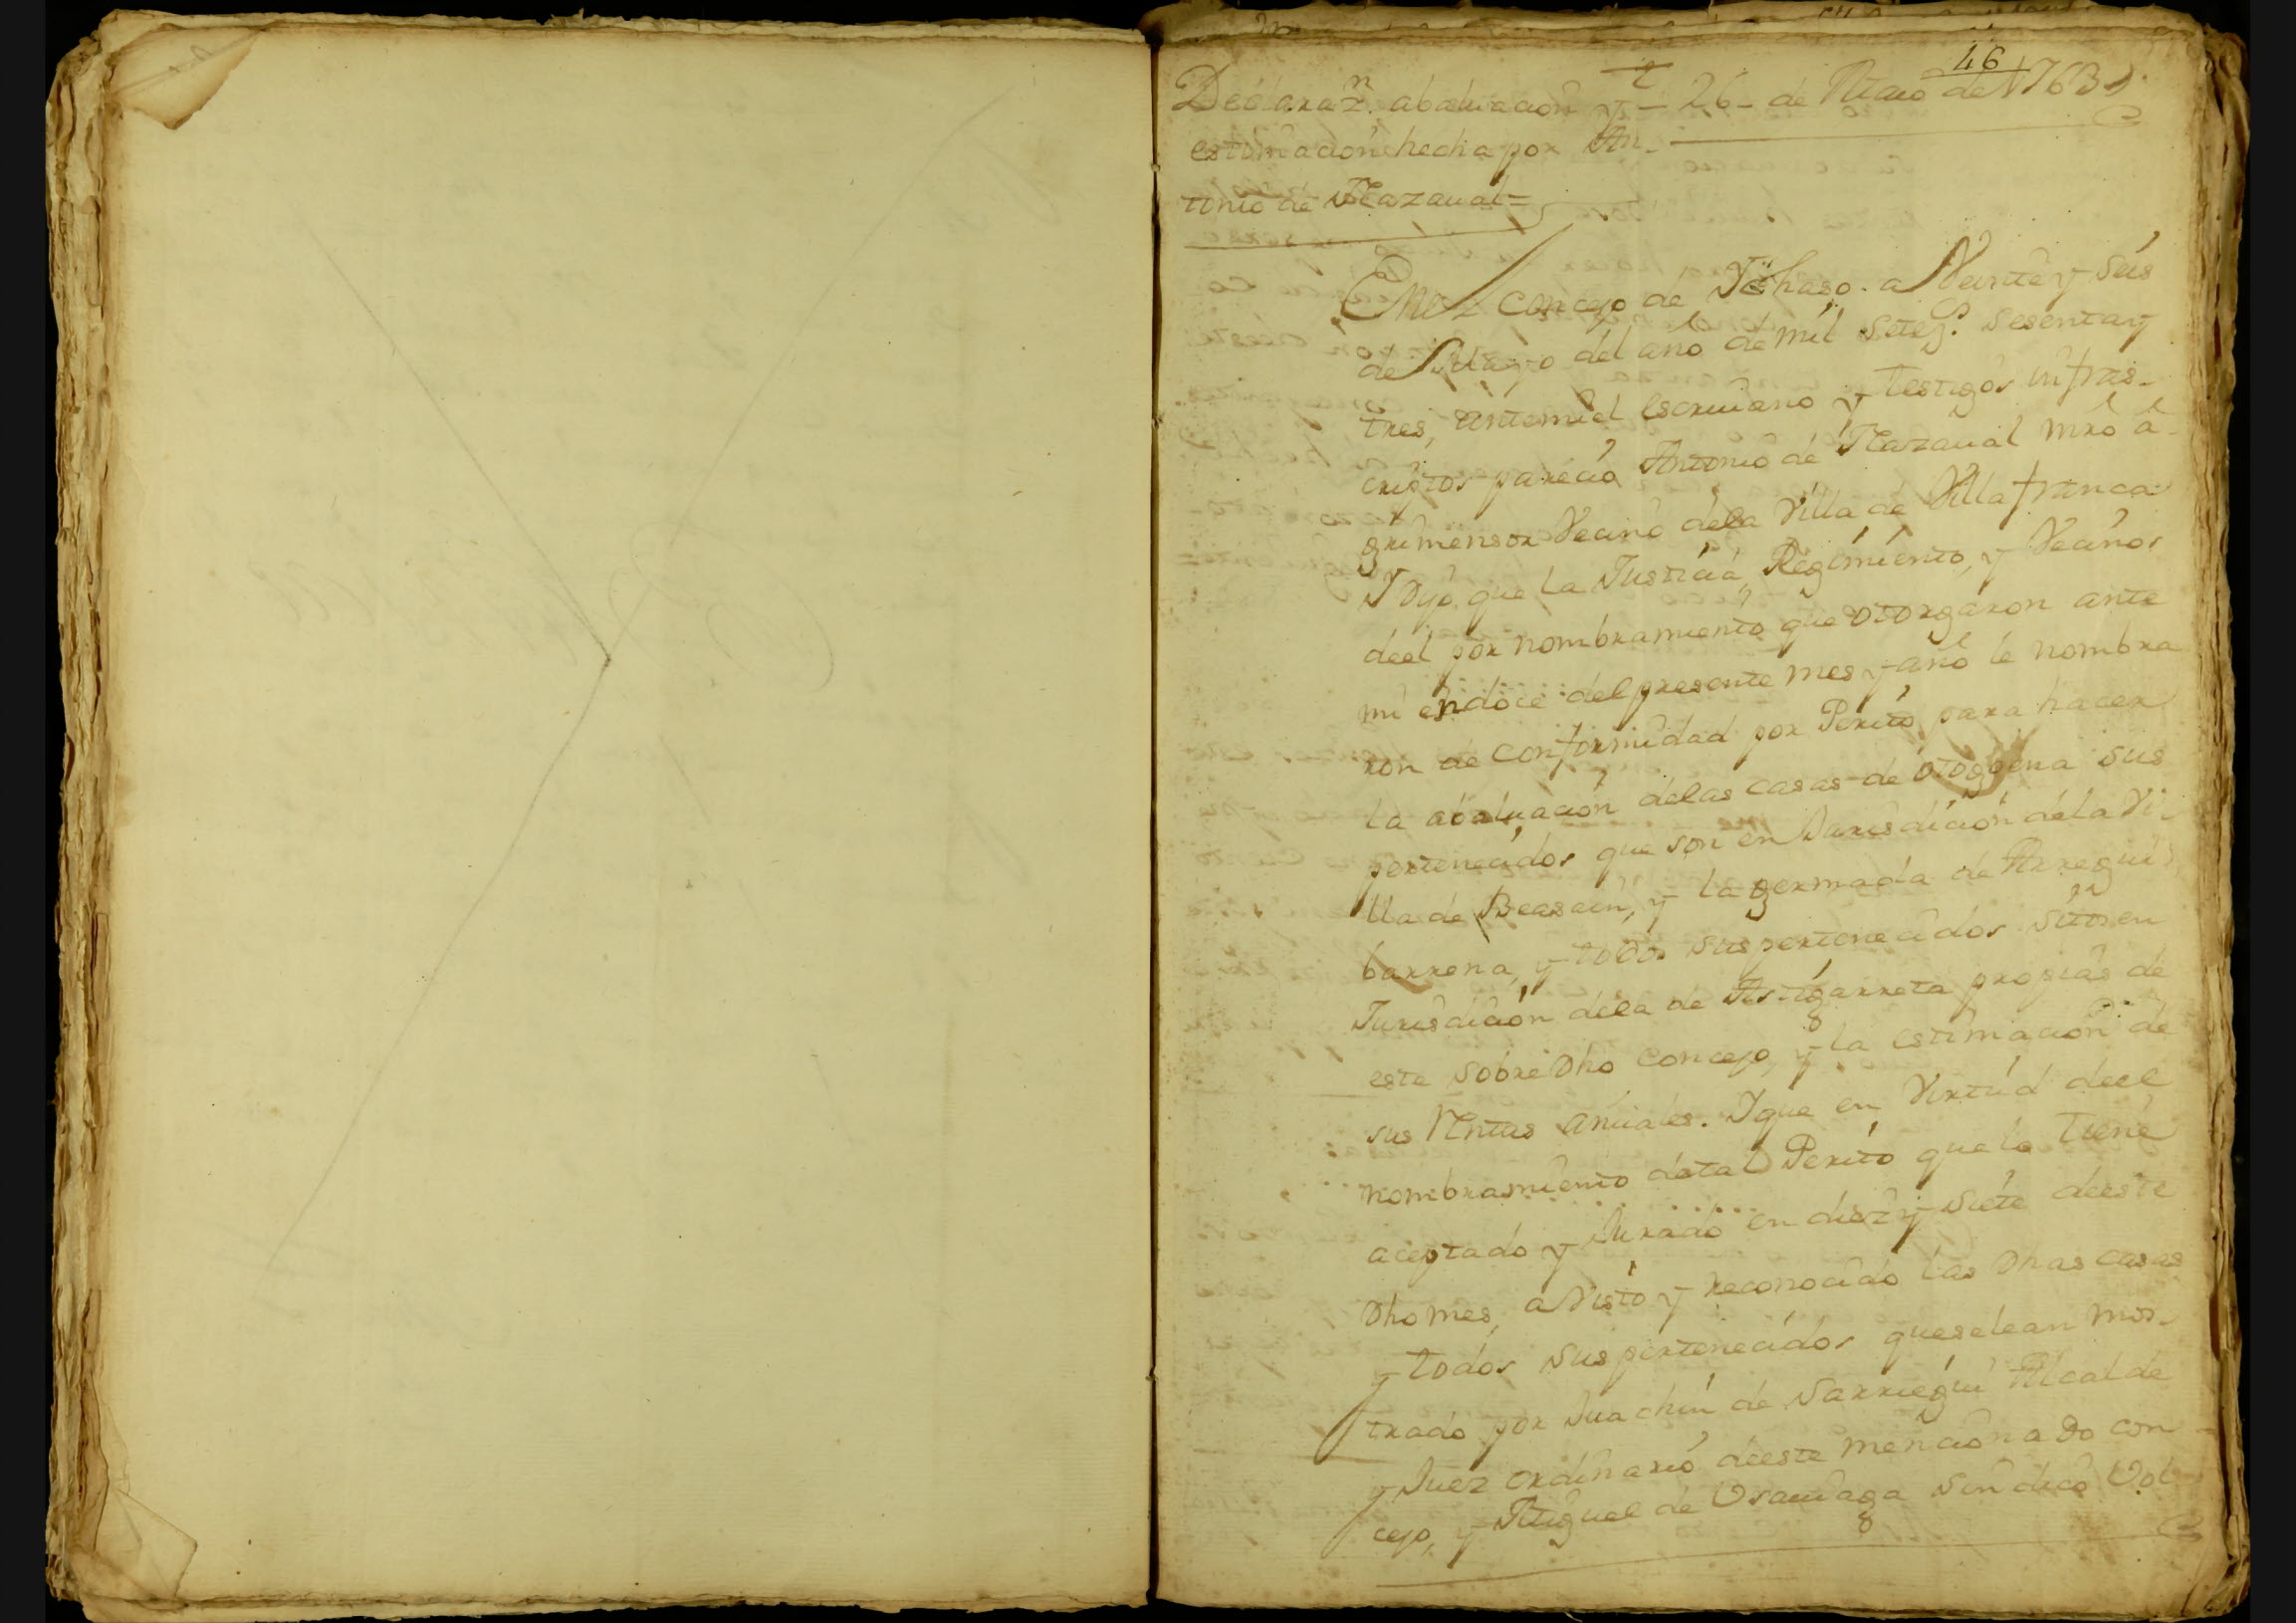 46
Declaraz.n abaluacion y - 26 - de Maio de 1763
estimacion hecha por An-
tonio de Mazaual=
En el concejo de Ichaso. a Veinte y Seis
de Mayo del año de mil Seteз.s Sesenta y
tres, antemi el escriuano y testigos infras-
criptos pareció Antonio de Mazaual mro a-
grimensor Vecino dela Villa de Villafranca
Y Dijo que la Justicia, Regimiento, y Vecinos
deel por nombramiento que otorgaron ante
mi en doce del presente mes y año le nombra
ron de conformidad por Perito para hacer
la abaluación delas casas de otogoena sus
pertenecidos que son en Jurisdición dela Vi-
lla de Beasain, y la germada de Arregui
barrena, y todos sus pertenecidos sitos en
Jurisdición dela de Astigarreta propias de
este sobre Dho concejo, y la estimacion de
sus Rentas anuales. Y que en Virtud deel
nombramiento de tal Perito que lo tiene
aceptado y Jurado en diez y siete deeste
Dho mes, a Visto y reconocido las Dhas casas
y todos sus pertenecidos queselean mos-
trado por Juachin de Sarriegui Alcalde
y Juez ordinario deeste mencionado con
cejo, y Miguel de Osauiaga Sindico